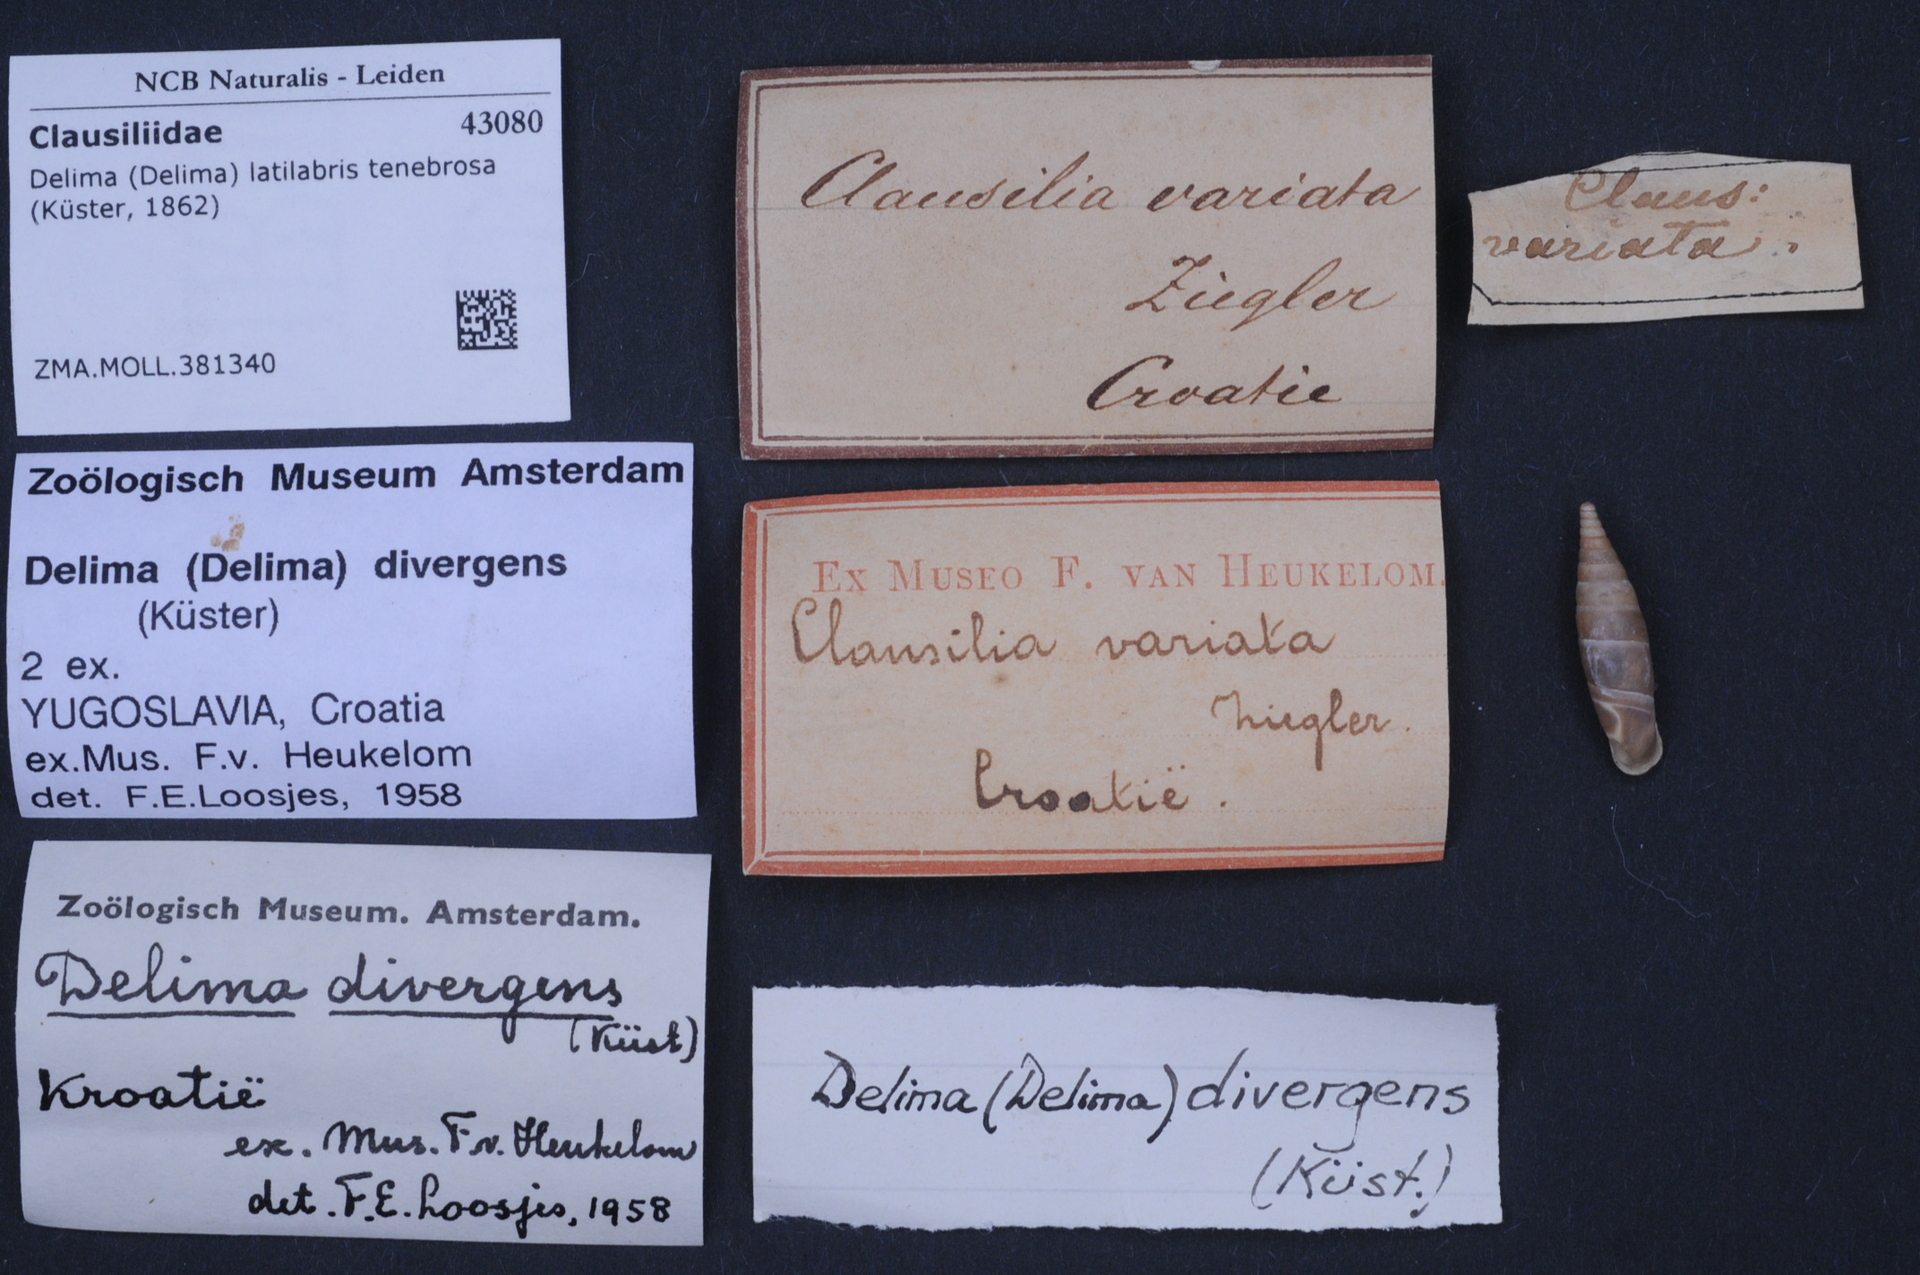 NCB Naturalis - Leiden
Clausiliidae 43080
Delima (Delima) latilabris tenebrosa
(Küster, 1862)
ZMA.MOLL.381340
Zoölogisch Museum Amsterdam
Delima (Delima) divergens
(Küster)
2 ex.
YUGOSLAVIA, Croatia
ex.Mus. F.v. Heukelom
det. F.E.Loosjes, 1958
Zoölogisch Museum. Amsterdam.
Delima divergens
(Küst)
Kroatië
ex. Mus. F.v. Heukelom
det. F.E. Loosjes, 1958
Clausilia variata
Ziegler
Croatie
Ex Museo F. van Heukelom.
Clausilia variata
Ziegler.
Croatië.
Delima (Delima) divergens
(Küst.)
Claus:
variata.